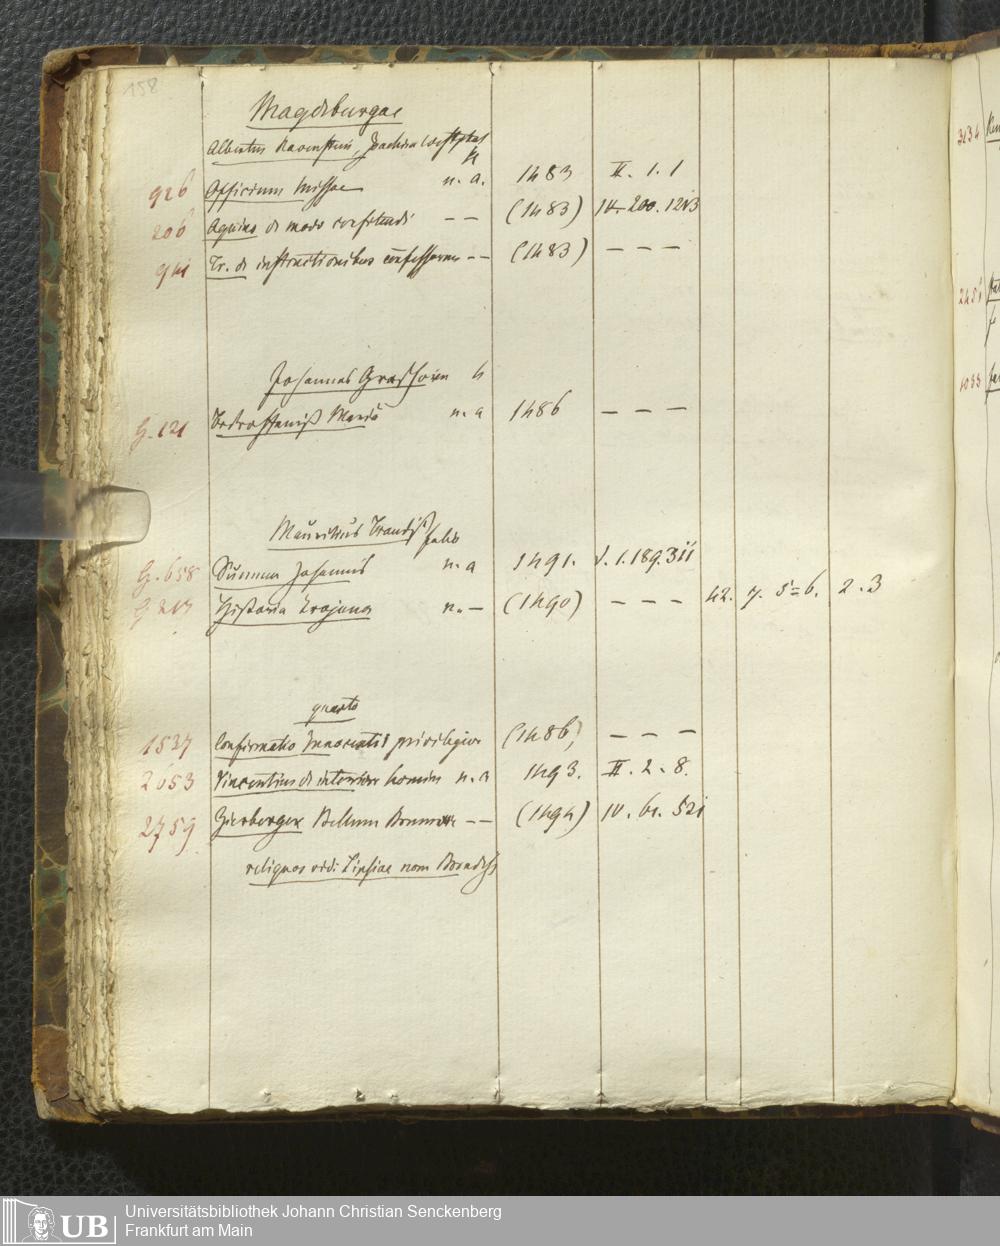 158
Magdeburgae
Albertus Ravenstein, Joachim Westphal
4
926 Officium Missae n. a. 1483 II. 1. 1
206 Aquino de modo confitendi - - (1483) IV. 200. 1213
941 Tr. de instructionibus confessorum - - (1483) - - -
Johannes Grashoven 4
G. 121 n. a 1486 - - -
Mauritius Brandis
folio
G. 658 Summa Johannis n. a 1491. V. 1. 189. 311
G 217 Historia Trojana n. - (1490) - - - 42. 7. 5=6. 2. 3
quarto
1527 Confirmatio Innocentii privilegior (1486) - - -
2653 Vincentius de interiore homine n. a 1493. II. 2. 8.
2759 Bellum - - (1494) IV. 61. 521
reliquos vidi Lipsiae nom Brandis
3134
2451
1033
UB Universitätsbibliothek Johann Christian Senckenberg
Frankfurt am Main